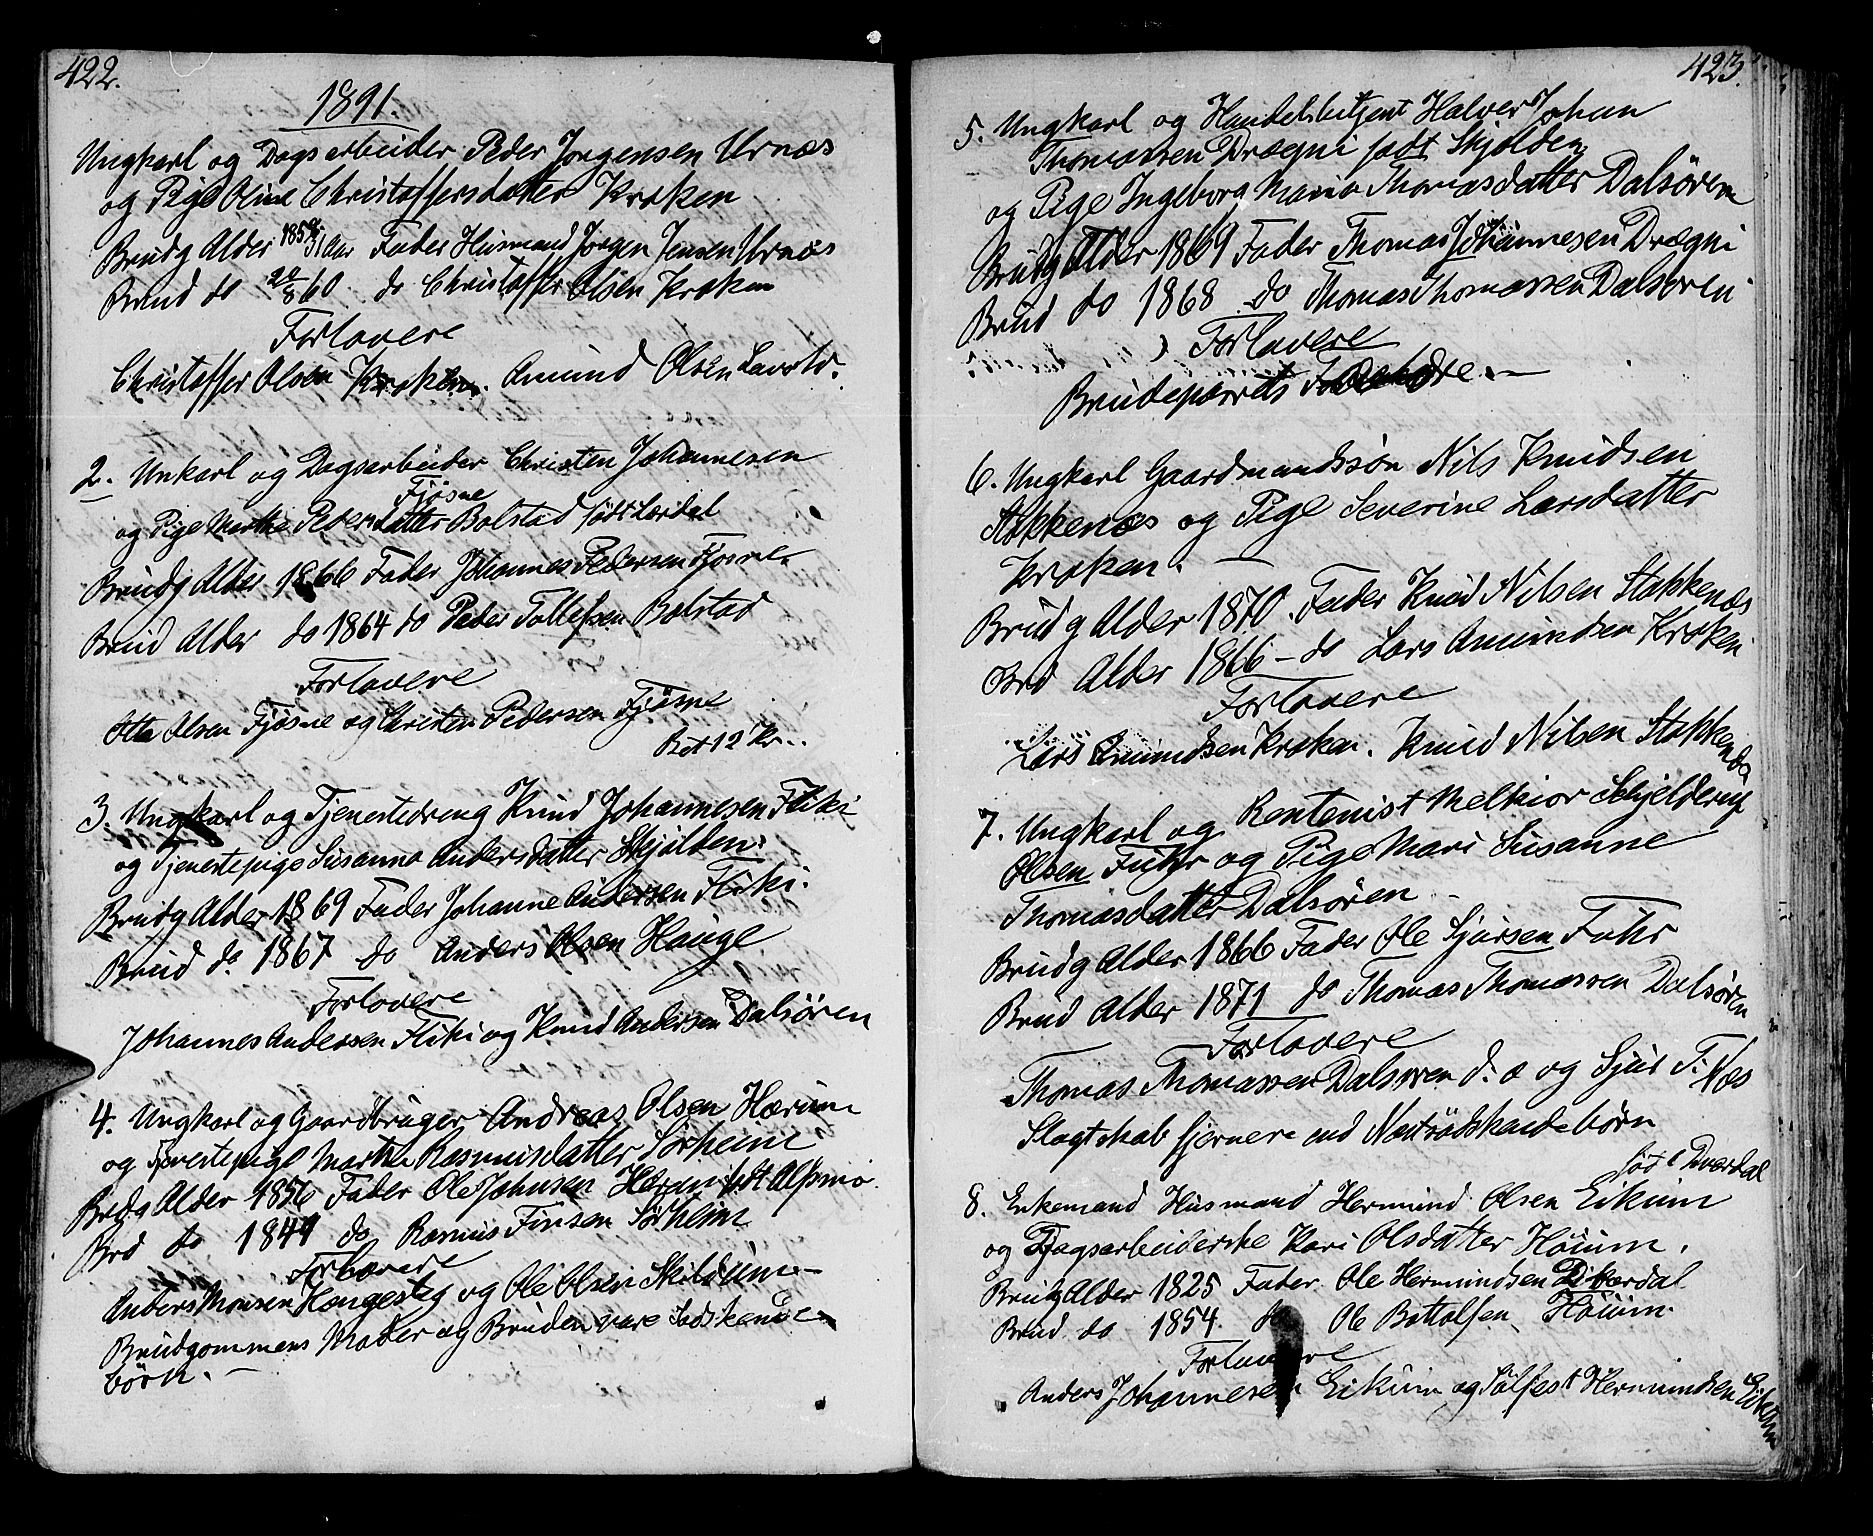 422.
1891.
Ungkarl og Dagsarbeider Peder Jørgensen Urnæs
og Pige Oline Christoffersdatter Kroken
Brudg Alder 1859 31 Aar Fader Husmand Jørgen Jensen Urnæs
Brud do 20/8 60 do Christoffer Olsen Kroken
Forlovere
Christoffer Olsen Kroken. Amund Olsen
2. Unkarl og Dagsarbeider Christen Johannesen
Fjøsne
og Pige Marthe Pedersdatter Bolstad født Lærdal
Brudg Alder 1866 Fader Johannes Pedersen Fjøsne
Brud Alder do 1864 do Peder Tollefsen Bolstad
Forlovere
Otto Olsen Fjøsne og Christen Pedersen Fjøsne
Bet 12 Kr..
3. Ungkarl og Tjenestedreng Knud Johannesen Fliki
og Tjenestepige Susanna Andersdatter Skjolden.
Brudg Alder 1869 Fader Johanne Andersen Fliki.
Brud do. 1867 do Anders Olsen Hauge
Forlovere
Johannes Andersen Fliki og Knud Andersen Dalsøren
4. Ungkarl og Gaardbruger Andreas Olsen Hærum
og Tjenestepige Martha Rasmusdatter Sørheim
Brdg Alder 1856 Fader Ole Johnsen Hærum født
Brd do 1849 do Rasmus Finsen Sørheim
Forlovere
Anders Monsen Haugesteg og Ole Olsen
Brudgommens Moder og Bruden vare Sødskende
børn. —
423.
5. Ungkarl og Handelsbetjent Halver Johan
Thomassen Drægni født Skjolden
og Pige Ingeborg Maria Thomasdatter Dalsøren
Brudg Alder 1869 Fader Thomas Johannesen Drægni
Brud do 1868 do Thomas Thomassen Dalsøren
Forlovere
Brudeparrets Fædre. —
6. Ungkarl Gaardmandssøn Nils Knudsen
Stokkenæs og Pige Severine Larsdatter
Kroken. —
Brudg Alder 1870. Fader Knud Nilsen Stokkenæs
Brd Alder 1866 – do Lars Amundsen Kroken
Forlovere
Lars Amundsen Kroken. Knud Nilsen Stokkenæs
7. Ungkarl og Rentenist Melkior Schjelderup
Olsen Fuhr og Pige Mari Susanne
Thomasdatter Dalsøren
Brudg Alder 1866 Fader Ole Sjursen Fuhr
Brud Alder 1871 do Thomas Thomassen Dalsøren
Forlovere
Thomas Thomassen Dalsøren d. æ og Sjur T. Næs
Slagtskab fjernere end Næstsødskendebørn
8. Enkemand Husmand Hermund Olsen Eikum
og Dagsarbeiderske Kari Olsdatter Høium.
Brudg Alder 1825 Fader Ole Hermundsen
Brud do 1854. do Ole Bottolfsen Høium.
Forlovere
Anders Johannesen Eikum og Sølfest Hermundsen Eikum